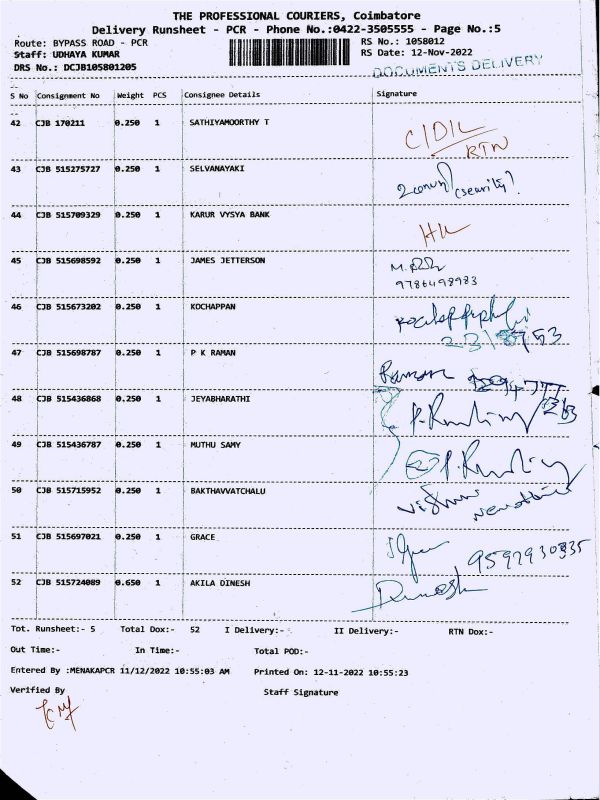 THE PROFESSIONAL COURIERS, Coimbatore
Delivery Runsheet - PCR - Phone No.:0422-3505555 - Page No.:5
Route: BYPASS ROAD - PCR RS No.: 1058012
Staff: UDHAYA KUMAR RS Date: 12-Nov-2022
DRS No.: DCJB105801205 DOCUMENTS DELIVERY
S No Consignment No Weight PCS Consignee Details Signature
42 CJB 170211 0.250 1 SATHIYAMOORTHY T
RTN
43 CJB 515275727 0.250 1 SELVANAYAKI
44 CJB 515709329 0.250 1 KARUR VYSYA BANK
45 CJB 515698592 0.250 1 JAMES JETTERSON
9786498983
46 CJB 515673202 0.250 1 KOCHAPPAN
47 CJB 515698787 0.250 1 P K RAMAN
Raman
48 CJB 515436868 0.250 1 JEYABHARATHI
49 CJB 515436787 0.250 1 MUTHU SAMY
50 CJB 515715952 0.250 1 BAKTHAVVATCHALU
51 CJB 515697021 0.250 1 GRACE
9597930335
52 CJB 515724089 0.650 1 AKILA DINESH
Dinesh
Tot. Runsheet:- 5 Total Dox:- 52 I Delivery:- II Delivery:- RTN Dox:-
Out Time:- In Time:- Total POD:-
Entered By :MENAKAPCR 11/12/2022 10:55:03 AM Printed On: 12-11-2022 10:55:23
Verified By Staff Signature